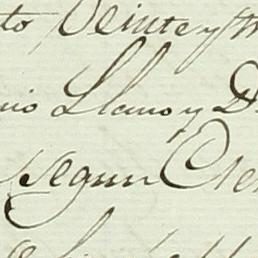 to Veinte y
nio Llano y D
segun Cle